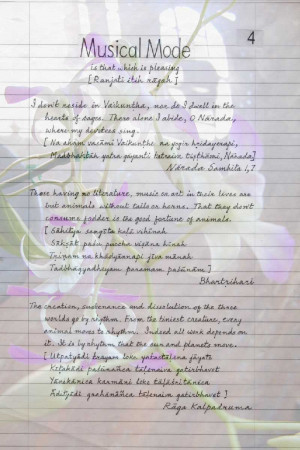 4
Musical Mode
is that which is pleasing
[Ranjati itih rāgah]
I don't reside in Vaikuntha, nor do I dwell in the
hearts of sages. There alone I abide, O Nārada,
where my devotees sing.
[Na aham vasāmi Vaikunthe na yogir hridayemapi,
Madbhaktāh yatra gāyanti tatraiva tisthāmi, Nārada]
Nārada Samhita 1,7
Those having no literature, music or art in their lives are
but animals without tails or horns. That they don't
consume fodder is the good fortune of animals.
[Sāhitya sangita kalā vihinah
Sākṣāt pasu puccha viṣāna hinah
Trinam na khādyannapi jiva mānah
Tadbhāgyadheyam paramam pasūnām]
Bhartrihari
The creation, sustenance and dissolution of the three
worlds go by rhythm. From the tiniest creature, every
animal moves to rhythm. Indeed all work depends on
it. It is by rhythm that the sun and planets move.
loke
tālenaiva gatirbhavet]
Rāga Kalpadruma